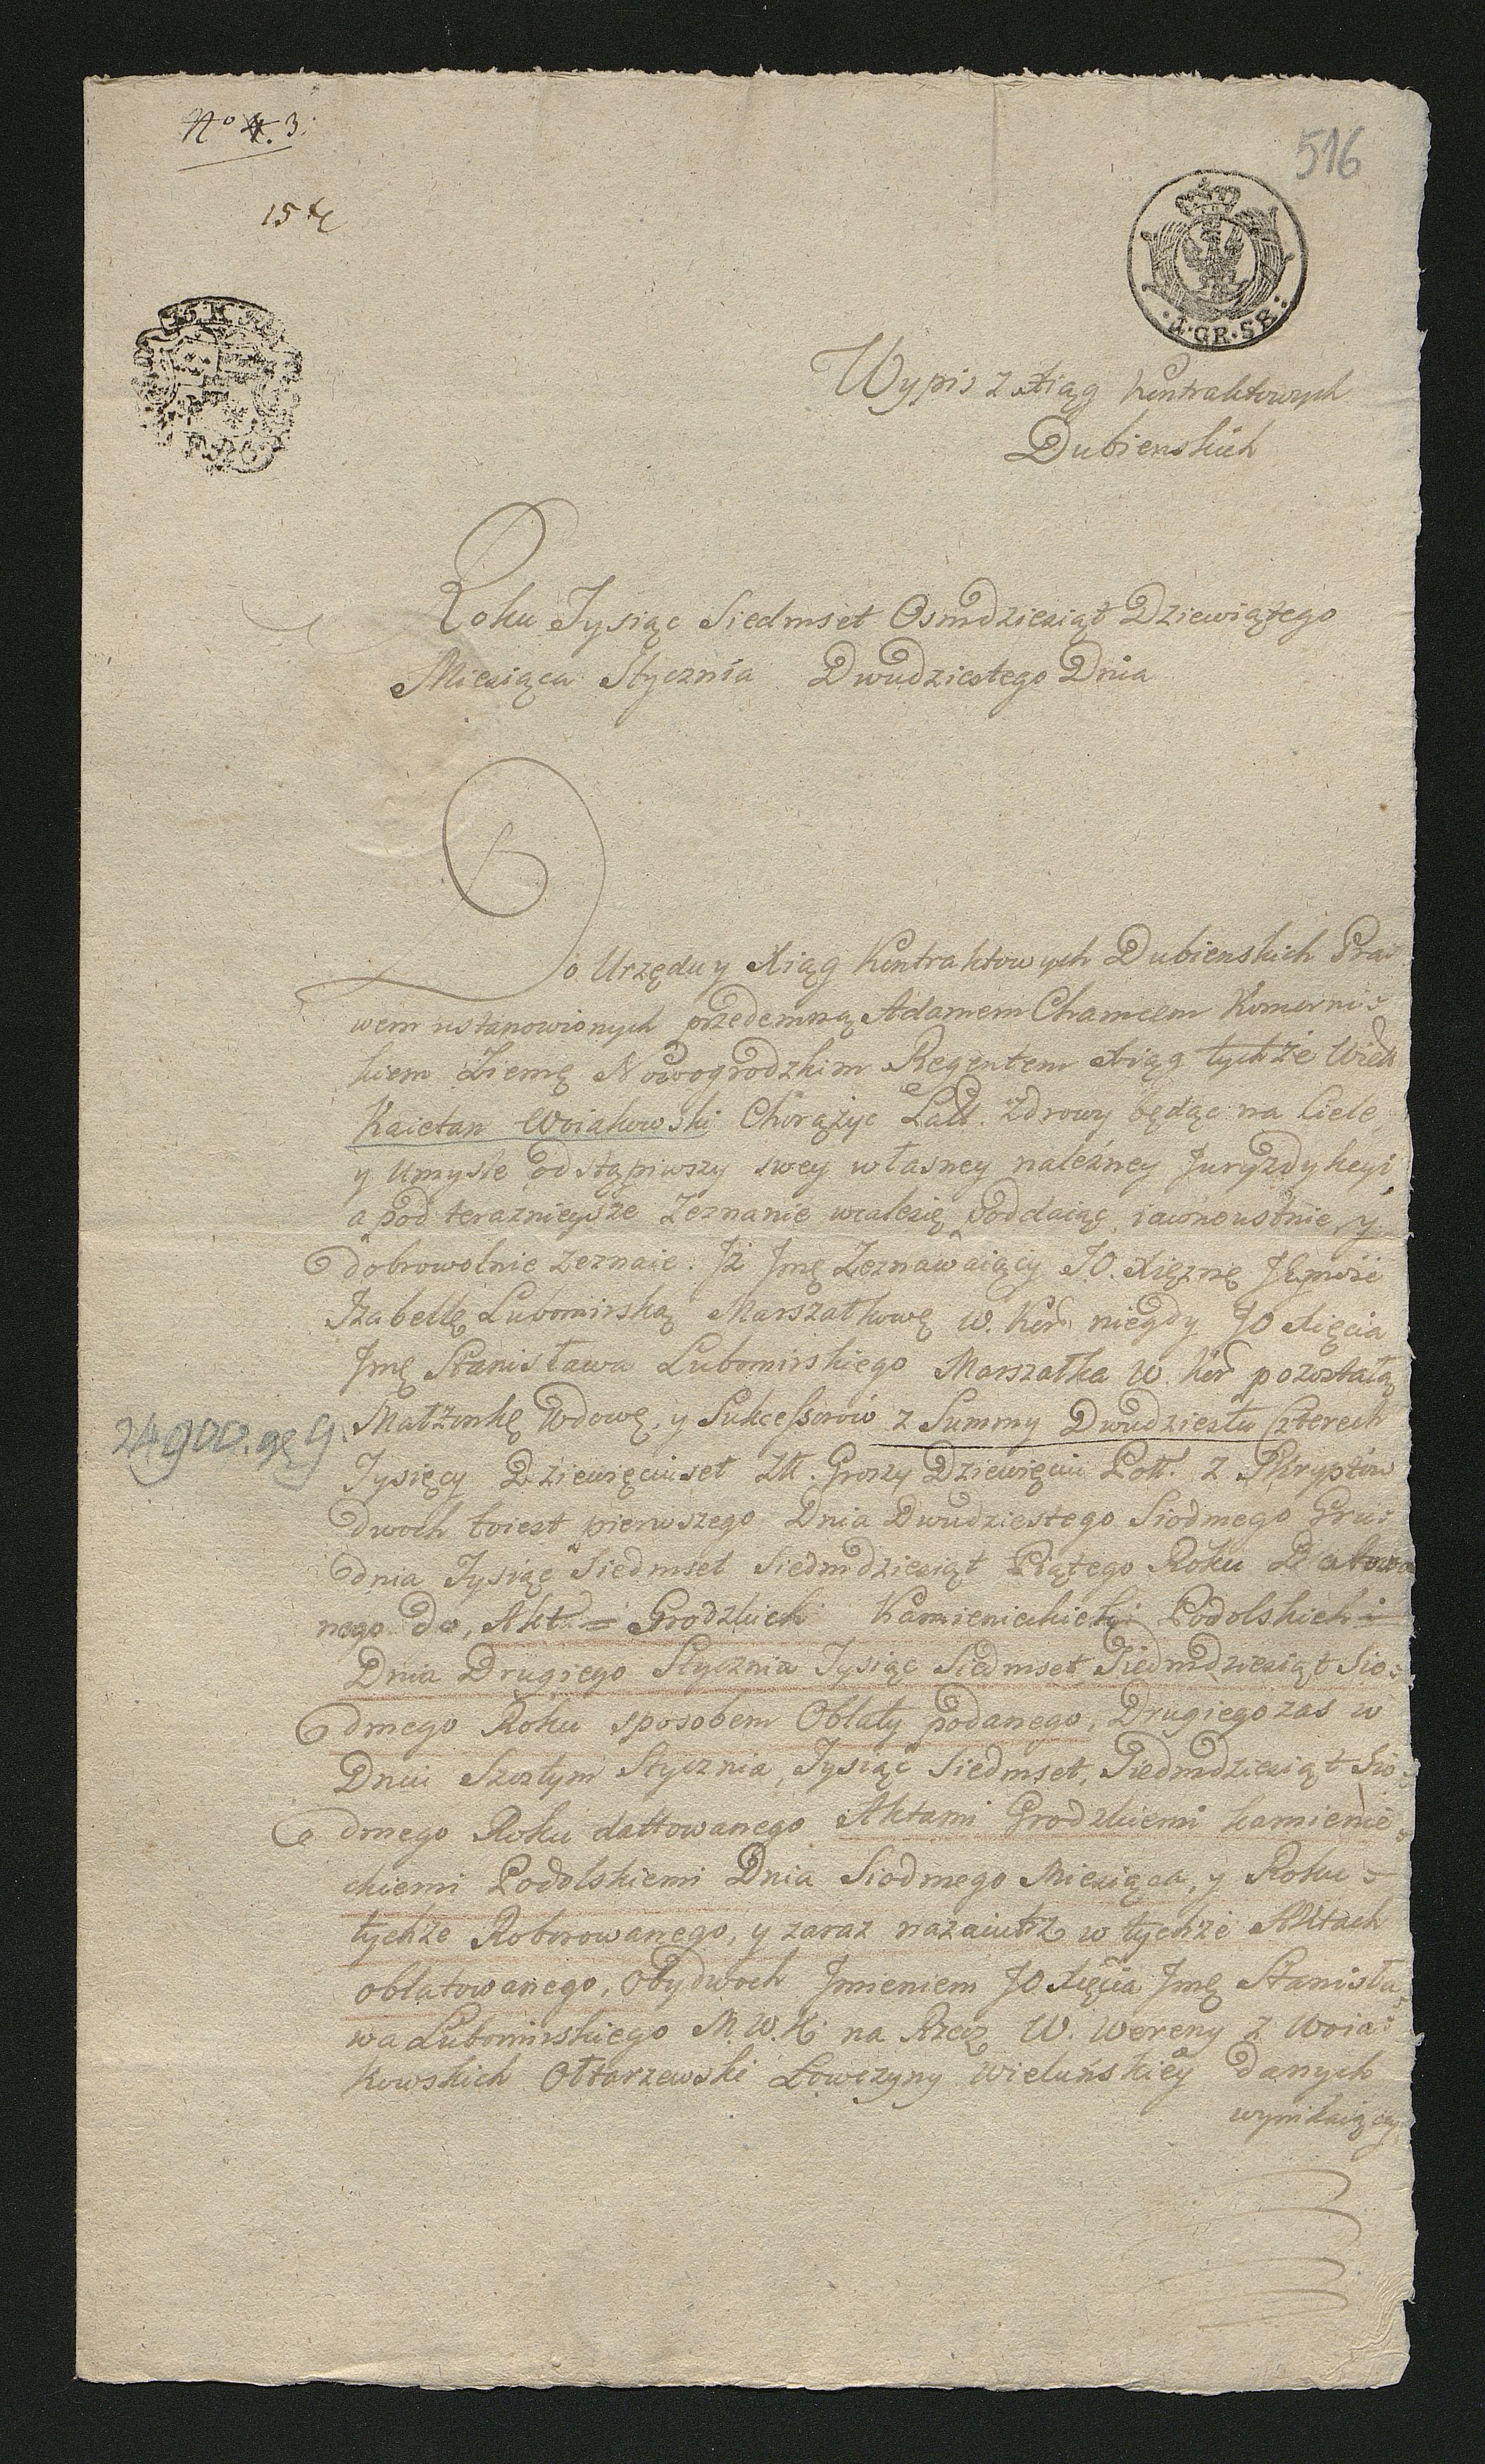 No 4. 3.
516
15 
4·GR·SR·
Wypis z Xiąg Kontraktowych
Dubienskich
Roku Tysiąc Siedmset Osmdziesiąt Dziewiątego
Miesiąca Stycznia Dwudziestego Dnia
Do Urzędu y Xiąg Kontraktowych Dubienskich Pra=
wem ustanowionych przedemną Adamem Chamcem Komorni=
kiem Ziemę Nowogrodzkim Regentem Xiąg tychże
Kaietan Woiakowski Chorążyc Latt. zdrowy będąc na Ciele
y Umyśle odstąpiwszy swey własney należney Juryzdykcyi
a pod teraznieysze Zeznanie wcalesię poddaiąc iawnoustnie y
dobrowolnie zeznaie. Iż Jmę Zeznawaiący JO. Xiężnę Jeymść
Izabellę Lubomirską Marszałkowę W. Kor niegdy JO Xięcia
Jmę Stanisława Lubomirskiego Marszałka W. Kor pozostałą
Małżonkę Wdowę, y Sukcessorów z Summy Dwudziestu Czterech
24900. gr 9.
Tysięcy Dziewięciuset Zł. Groszy Dziewięciu Poll. z Skryptów
dwoch toiest pierwszego Dnia Dwudziestego Siodmego Gru=
dnia Tysiąc Siedmset Siedmdziesiąt Piątego Roku Datowa
nego do, Akt = Grodzkich Kamienieckich Podolskich =
Dnia Drugiego Stycznia Tysiąc Siedmset Siedmdziesiąt Sio=
dmego Roku sposobem Oblaty podanego, Drugiego zas w
Dniu Szostym Stycznia, Tysiąc Siedmset, Siedmdziesiąt Sio=
dmego Roku dattowanego Aktami Grodzkiemi kamienie=
ckiemi Podolskiemi Dnia Siodmego Miesiąca, y Roku =
tychże Roborowanego, y zaraz nazaiutrz w tychże Aktach
oblatowanego, Obydwoch Jmieniem JO Xięcia Jmę Stanisła=
wa Lubomirskiego M. W. K. na Rzecz W. Wereny z Woia=
kowskich Ołtarzewski Łowczyny Wieluńskiey danych
wynikaiącey